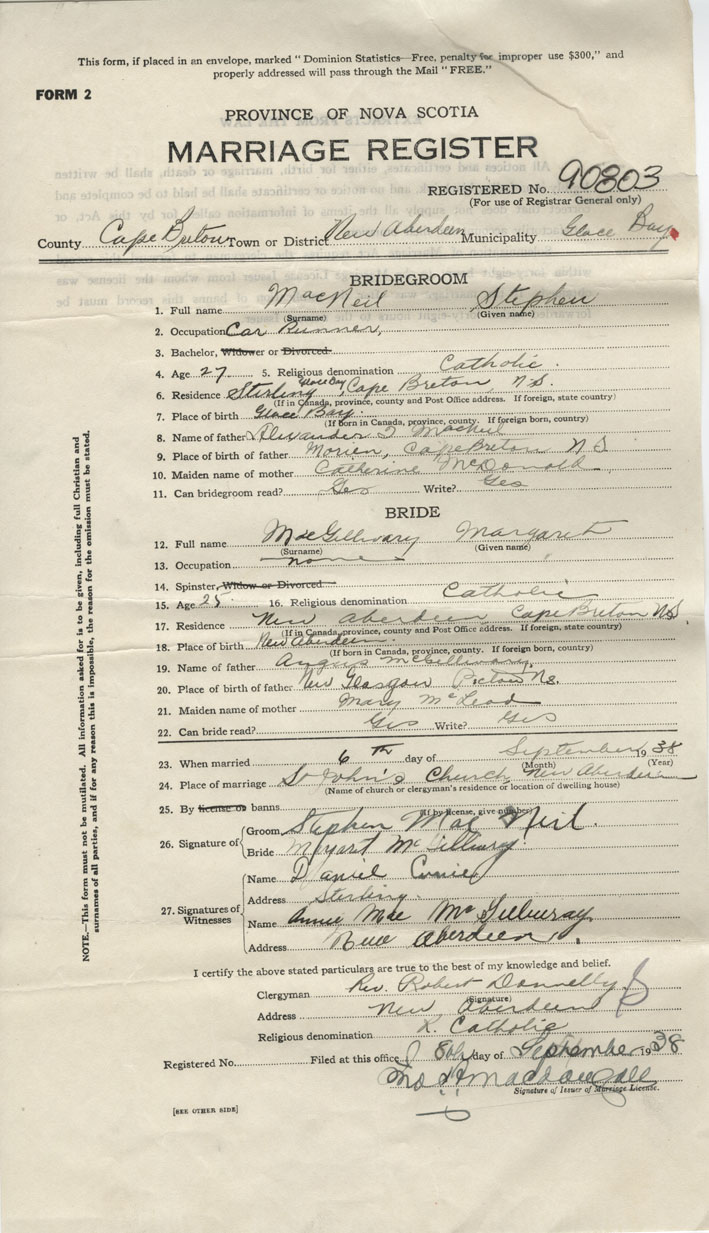 This form, if placed in an envelope, marked "Dominion Statistics—Free, penalty for improper use $300," and
properly addressed will pass through the Mail "FREE."
FORM 2
PROVINCE OF NOVA SCOTIA
MARRIAGE REGISTER
REGISTERED No. 90803
(For use of Registrar General only)
County Cape Breton Town or District New Aberdeen Municipality Glace Bay
BRIDEGROOM
1. Full name MacNeil Stephen
(Surname) (Given name)
2. Occupation Car Runner,
3. Bachelor, Widower or Divorced
4. Age 27 5. Religious denomination Catholic.
6. Residence Sterling Glace Bay, Cape Breton, N.S.
(If in Canada, province, county and Post Office address. If foreign, state country)
7. Place of birth Glace Bay.
(If born in Canada, province, county. If foreign born, country)
8. Name of father Alexander J MacNeil
9. Place of birth of father Morien, Cape Breton N S
10. Maiden name of mother Catherine McDonald
11. Can bridegroom read? Yes Write? Yes
BRIDE
12. Full name MacGillivary Margaret
(Surname) (Given name)
13. Occupation none
14. Spinster, Widow or Divorced
15. Age 25 16. Religious denomination Catholic
17. Residence New Aberdeen Cape Breton N.S.
(If in Canada, province, county and Post Office address. If foreign, state country)
18. Place of birth New Aberdeen
(If born in Canada, province, county. If foreign born, country)
19. Name of father Angus McGillivary,
20. Place of birth of father New Glasgow Pictou N.S.
21. Maiden name of mother Mary McLeod
22. Can bride read? Yes Write? Yes
23. When married 6th day of September 1938
(Month) (Year)
24. Place of marriage St John's Church, New Aberdeen
(Name of church or clergyman's residence or location of dwelling house)
25. By license or banns
(If by license, give number)
26. Signature of Groom Stephen Mac Neil.
Bride
27. Signatures of Witnesses
Name Daniel
Address Sterling.
Name Annie Mae
Address New Aberdeen.
I certify the above stated particulars are true to the best of my knowledge and belief.
Clergyman Rev. Robert Donnelly
(Signature)
Address New Aberdeen
Religious denomination R. Catholic
Registered No. Filed at this office 8th day of September 1938
Signature of Issuer of Marriage License.
[SEE OTHER SIDE]
NOTE.—This form must not be mutilated. All information asked for is to be given, including full Christian and
surnames of all parties, and if for any reason this is impossible, the reason for the omission must be stated.